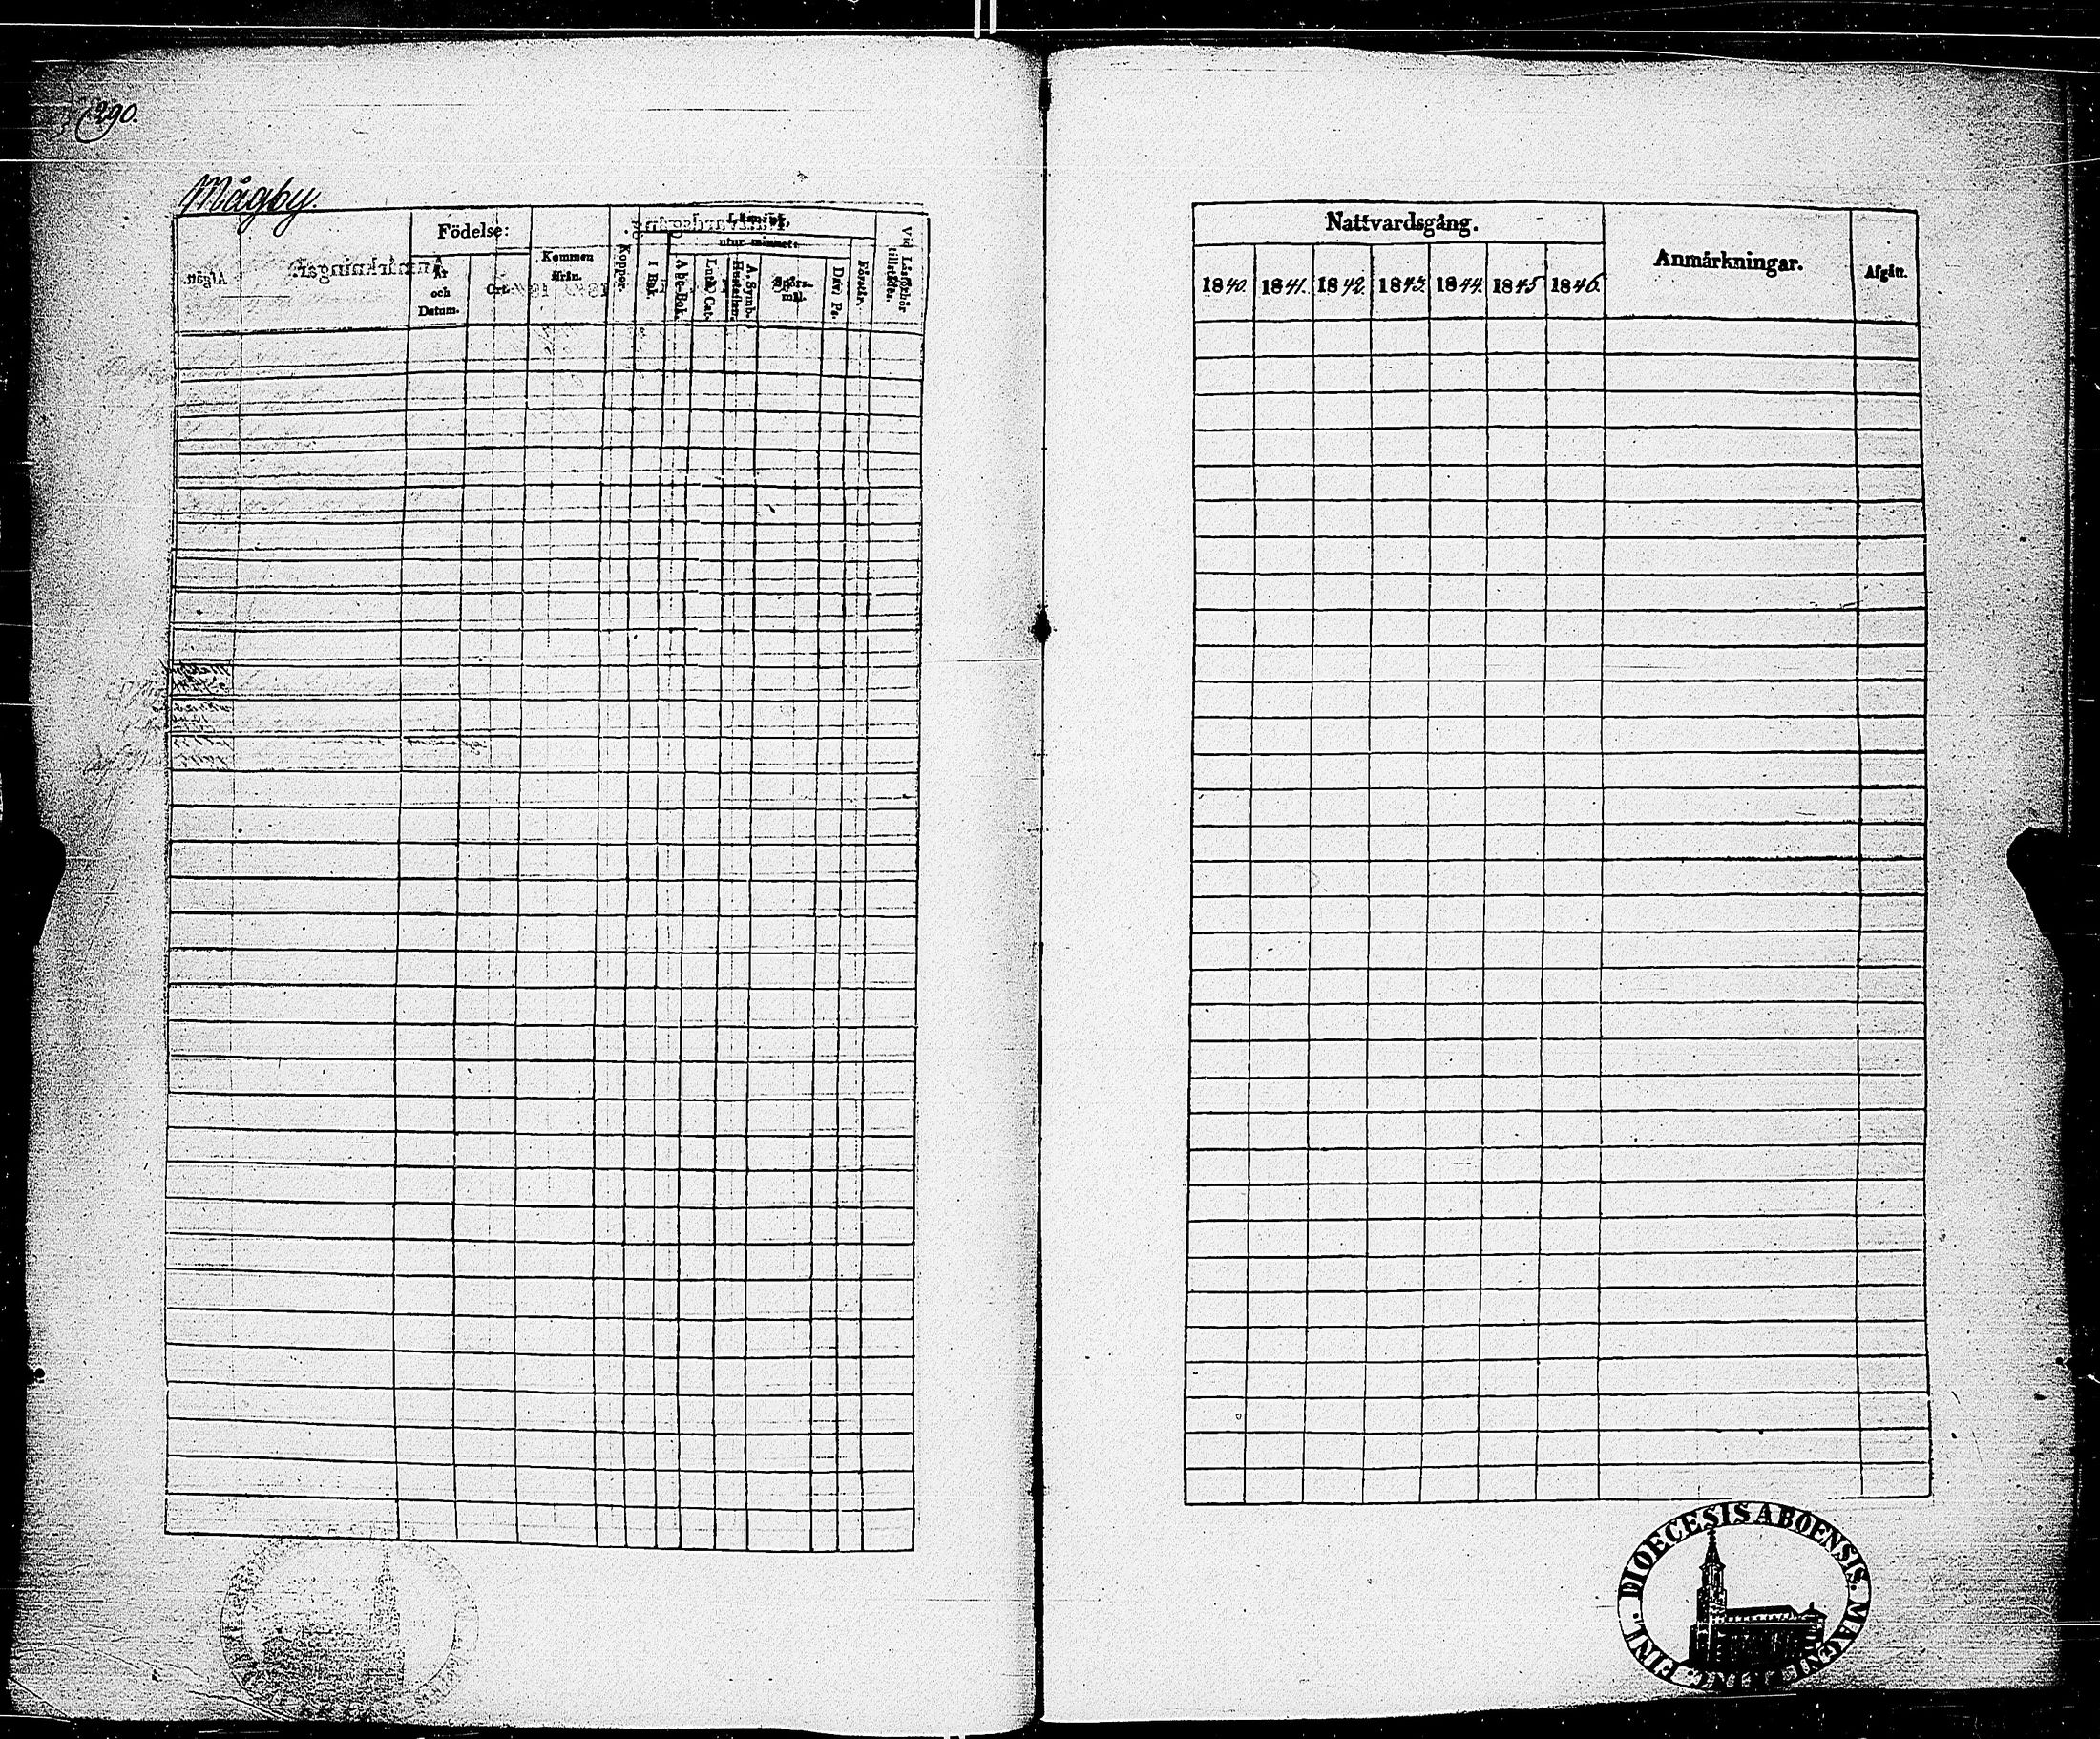 290.
Mågby.
Födelse:
År och Datum.
Ort.
Kommen ifrån.
Koppor.
Läsning,
utur minnet:
I Bok.
A b c-Bok.
Luth. Cat.
Hustaflan.
A. Symb.
Spörs-mål.
Dav. Ps.
Förstår.
Vid Läsförhör tillstädes.
Nattvardsgång.
1840. 1841. 1842. 1843. 1844. 1845 1846.
Anmärkningar.
Afgått.
FINL. DIOECESIS ABOENSIS. MAGNI DUC.